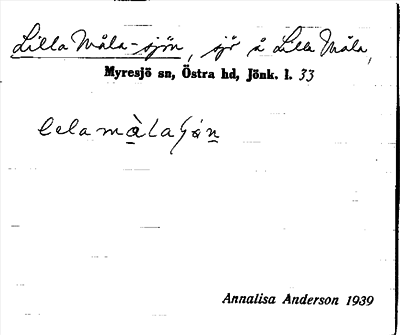 Lilla Måla-sjön, sjö å Lilla Måla,
Myresjö sn, Östra hd, Jönk. l. 33
Annalisa Anderson 1939